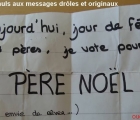 uls aux messages drôles et originaux
jourd'hui, jour de fê
pères, je vote pour
PÈRE NOËL
envie de rêver...)